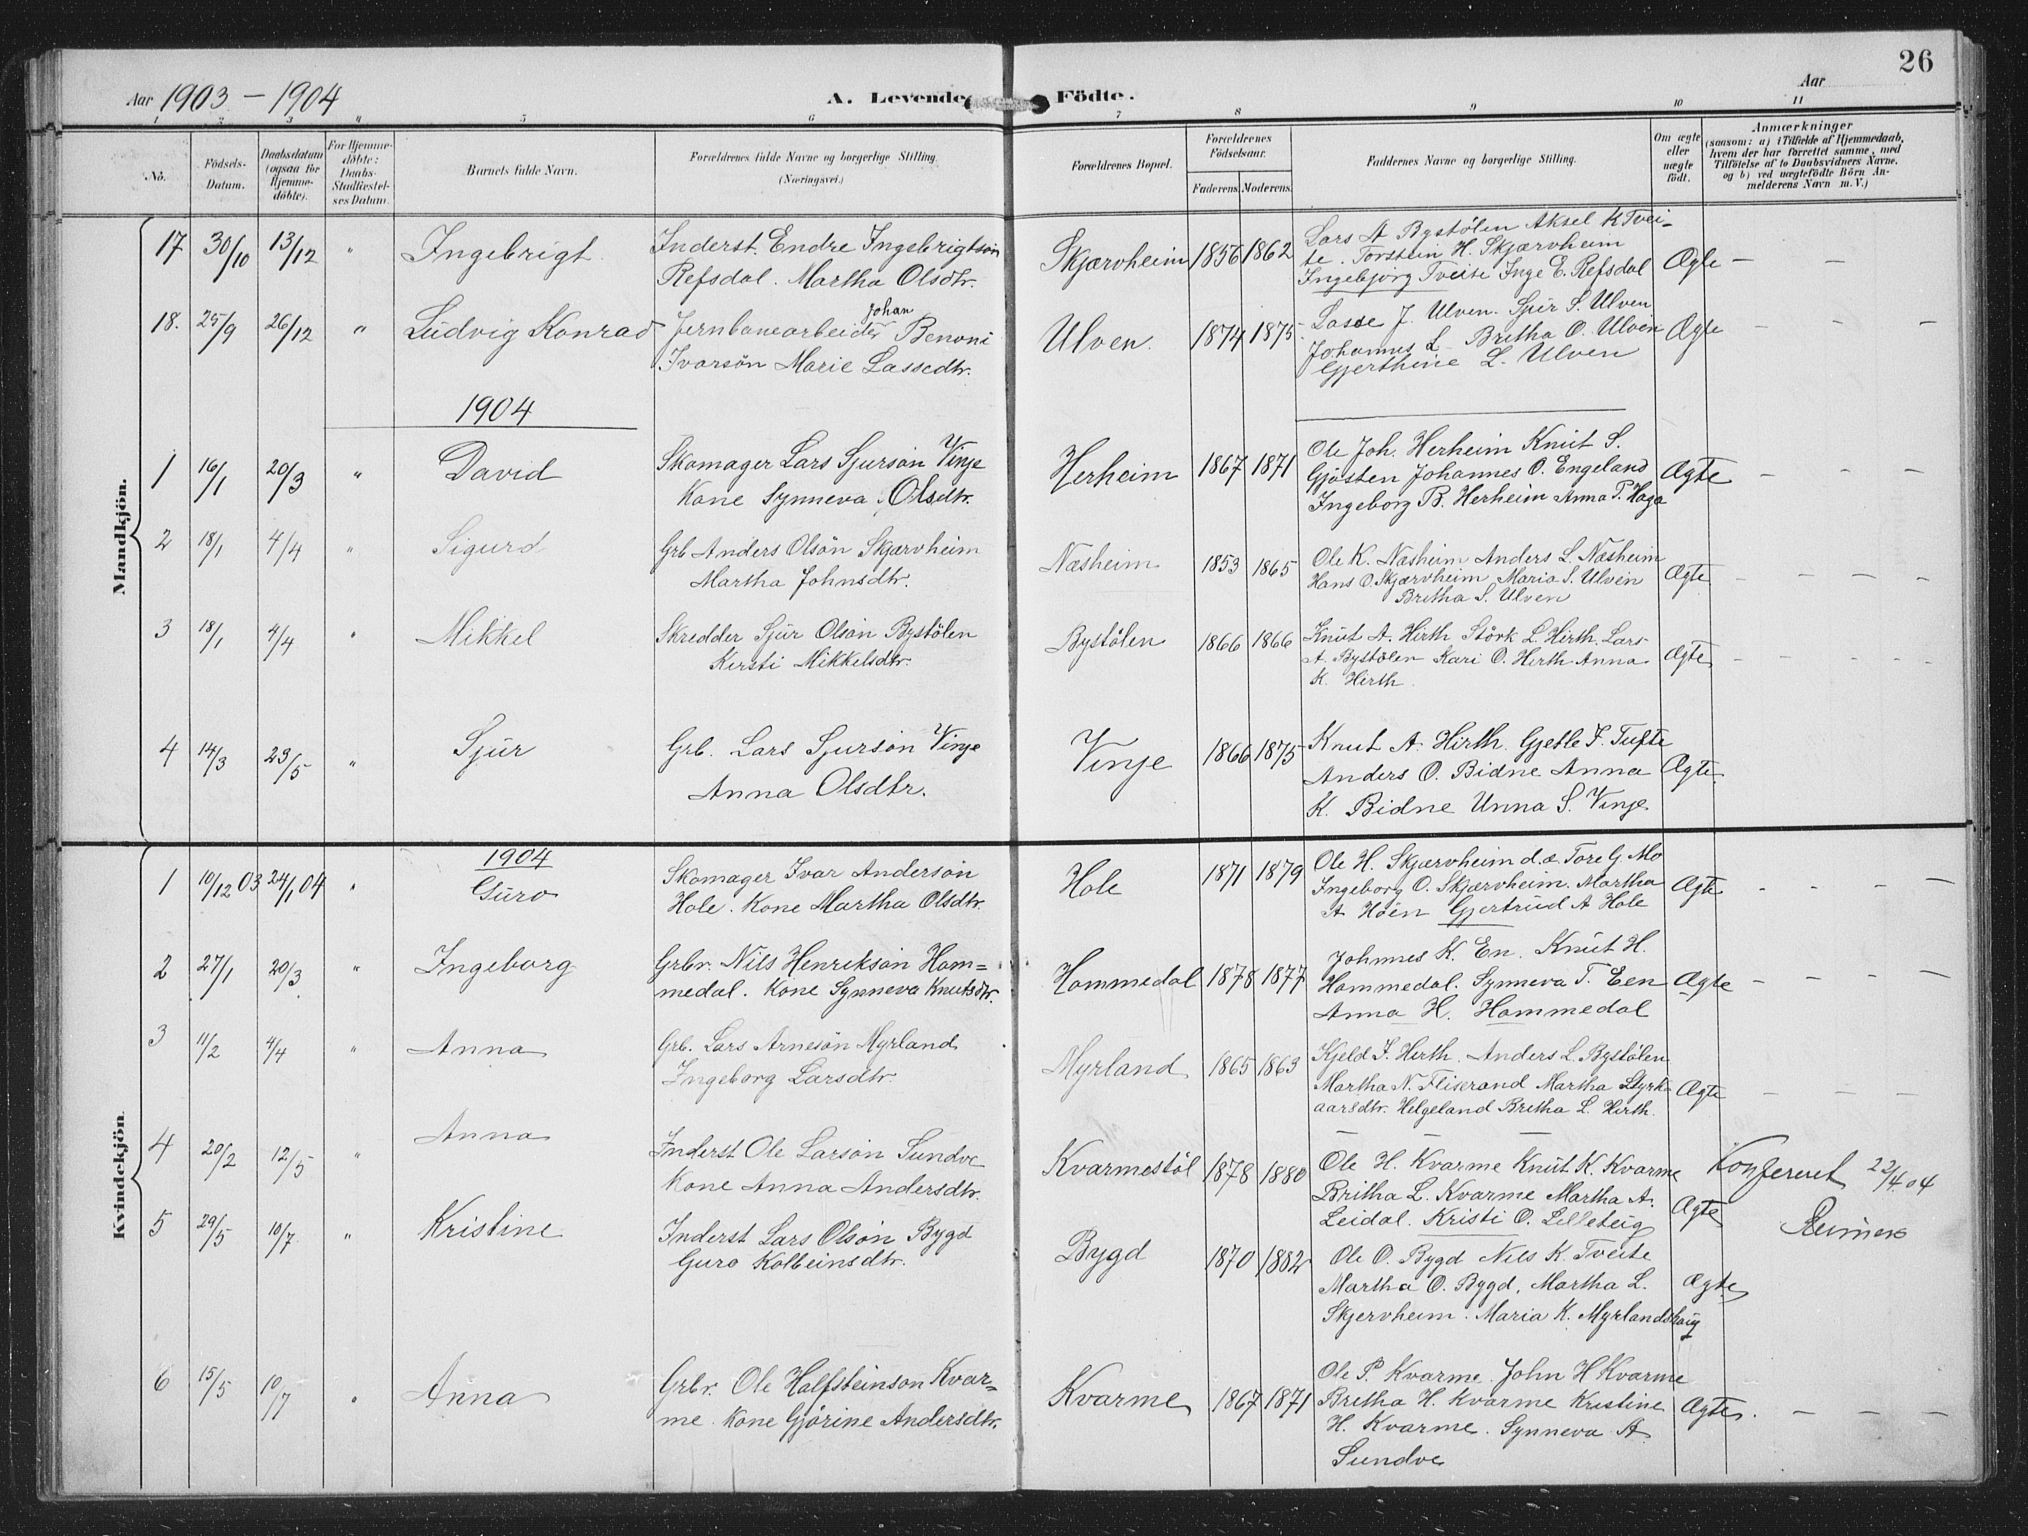 Aar 1903 - 1904 A. Levende Födte. Aar 26
1 2 3 " 5 6 7 8 9 10 11
No.
Födsels-Datum.
Daabsdatum (ogsaa for Hjemme-döbte).
For Hjemme-döbte: Daabs-Stadfæstel-ses Datum.
Barnets fulde Navn.
Forældrenes fulde Navne og borgerlige Stilling.
(Næringsvei.)
Forældrenes Bopæl.
Forældrenes Födselsaar.
Faderens. Moderens.
Faddernes Navne og borgerlige Stilling.
Om ægte eller uægte födt.
Anmærkninger
(saasom: a) i Tilfælde af Hjemmedaab,
hvem der har forrettet samme, med
Tilföielse af to Daabsvidners Navne.
og b) ved uægtefödte Börn An-
melderens Navn m. V.)
Mandkjön.
17 30/10 13/12 " Ingebrigt
Inderst. Endre Ingebrigtsön
Refsdal. Martha Olsdtr.
Skjærvheim 1856 1862
Lars A Bystölen Aksel K Tvei-
te. Torstein H. Skjærvheim
Ingebjörg Tveite Inge E. Refsdal
Ægte — —
18. 25/9 26/12 " Ludvig Konrad
Johan
Jernbanearbeider Benoni
Ivarsön Marie Lassedtr.
Ulven. 1874 1875
Lasse J. Ulven. Sjur S. Ulven
Johannes L Britha O. Ulven
Gjerthine L. Ulven
Ægte — — —
1904
1 16/1 20/3 " David
Skomager Lars Sjursön Vinje
Kone Synneva Olsdtr.
Herheim 1867 1871
Ole Joh. Herheim Knut S.
Gjösten Johannes O. Engeland
Ingeborg B. Herheim Anna P. Haga
Ægte — — — —
2 18/1 4/4 " Sigurd
Grb Anders Olsön Skjærvheim
Martha Johnsdtr.
Næsheim 1853 1865
Ole K. Næsheim Anders L. Næsheim
Hans O. Skjærvheim Maria S. Ulven
Britha S. Ulven
Ægte — — — —
3 18/1 4/4 " Mikkel
Skredder Sjur Olsön Bystölen
Kirsti Mikkelsdtr.
Bystölen 1866 1866
Knut A. Hirth Störk L. Hirth. Lars
A. Bystölen Kari O. Hirth Anna
K. Hirth.
Ægte — — — —
4 14/3 23/5 " Sjur
Grb. Lars Sjursön Vinje
Anna Olsdtr.
Vinje 1866 1875
Knut A. Hirth. Gjetle S. Tufte
Anders O. Bidne Anna
K. Bidne Unna S. Vinje
Ægte.
Kvindekjön.
1904
1 10/12 03 24/1 04 " Guro
Skomager Ivar Andersön
Hole. Kone Martha Olsdtr.
Hole 1871 1879
Ole H. Skjærvheim d.æ Tore G. Mo
Ingeborg O. Skjærvheim. Martha
A Höen Gjertrud A Hole
Ægte — — — —
2 27/1 20/3 " Ingeborg
Grbr. Nils Henriksön Ham=
medal. Kone Synneva Knutsdtr.
Hommedal 1878 1877
Johnnes K. En. Knut H.
Hommedal. Synneva T. Een
Anna H. Hommedal
Ægte — — — —
3 11/2 4/4 " Anna
Grb. Lars Arnesön Myrland
Ingeborg Larsdtr.
Myrland 1865 1863
Kjeld S. Hirth. Anders L. Bystölen
Martha N. Fliserand Martha Styrk-
aarsdtr. Helgeland Britha L. Hirth.
Ægte — — — —
4 20/2 12/5 " Anna
Inderst Ole Larsön Sundve
Kone Anna Andersdtr.
Kvarmestöl 1878 1880
Ole H. Kvarme Knut K. Kvarme
Britha L. Kvarme Martha A.
Leidal. Kristi O. Lilleteig
Ægte
Konfereret 22/4 04
Reimers
5 29/5 10/7 " Kristine
Inderst Lars Olsön Bygd
Guro Kolbeinsdtr.
Bygd 1870 1882
Ole O. Bygd Nils K. Tveite
Martha O. Bygd, Martha L.
Skjervheim. Maria K. Myrlandshaug
Ægte
6 15/5 10/7 " Anna
Grbr. Ole Halfsteinson Kvar=
me. Kone Gjörine Andersdtr.
Kvarme 1867 1871
Ole P. Kvarme. John H Kvarme
Bretha H. Kvarme Kristine
H. Kvarme. Synneva A
Sundve
Ægte. — — — —